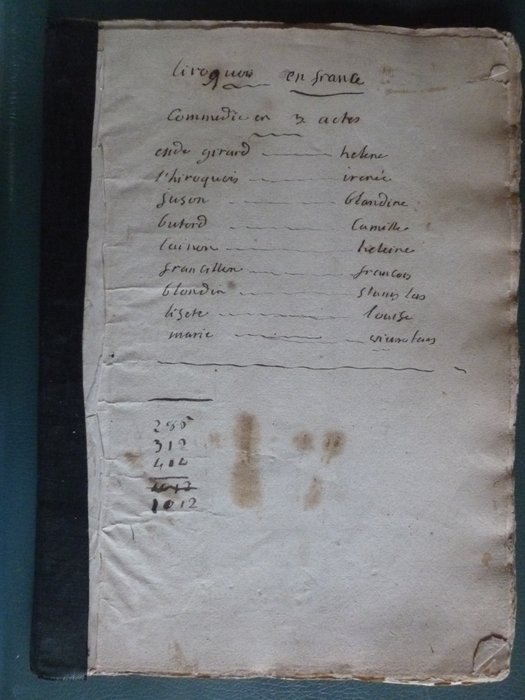 liroquois en france
Commedie en 3 actes
girard helene
l'hiroquois irenée
suson blandine
butord Camille
lainon heleine
francillon francois
blondin stanislas
lisete louise
marie
285
312
414
1012
1012